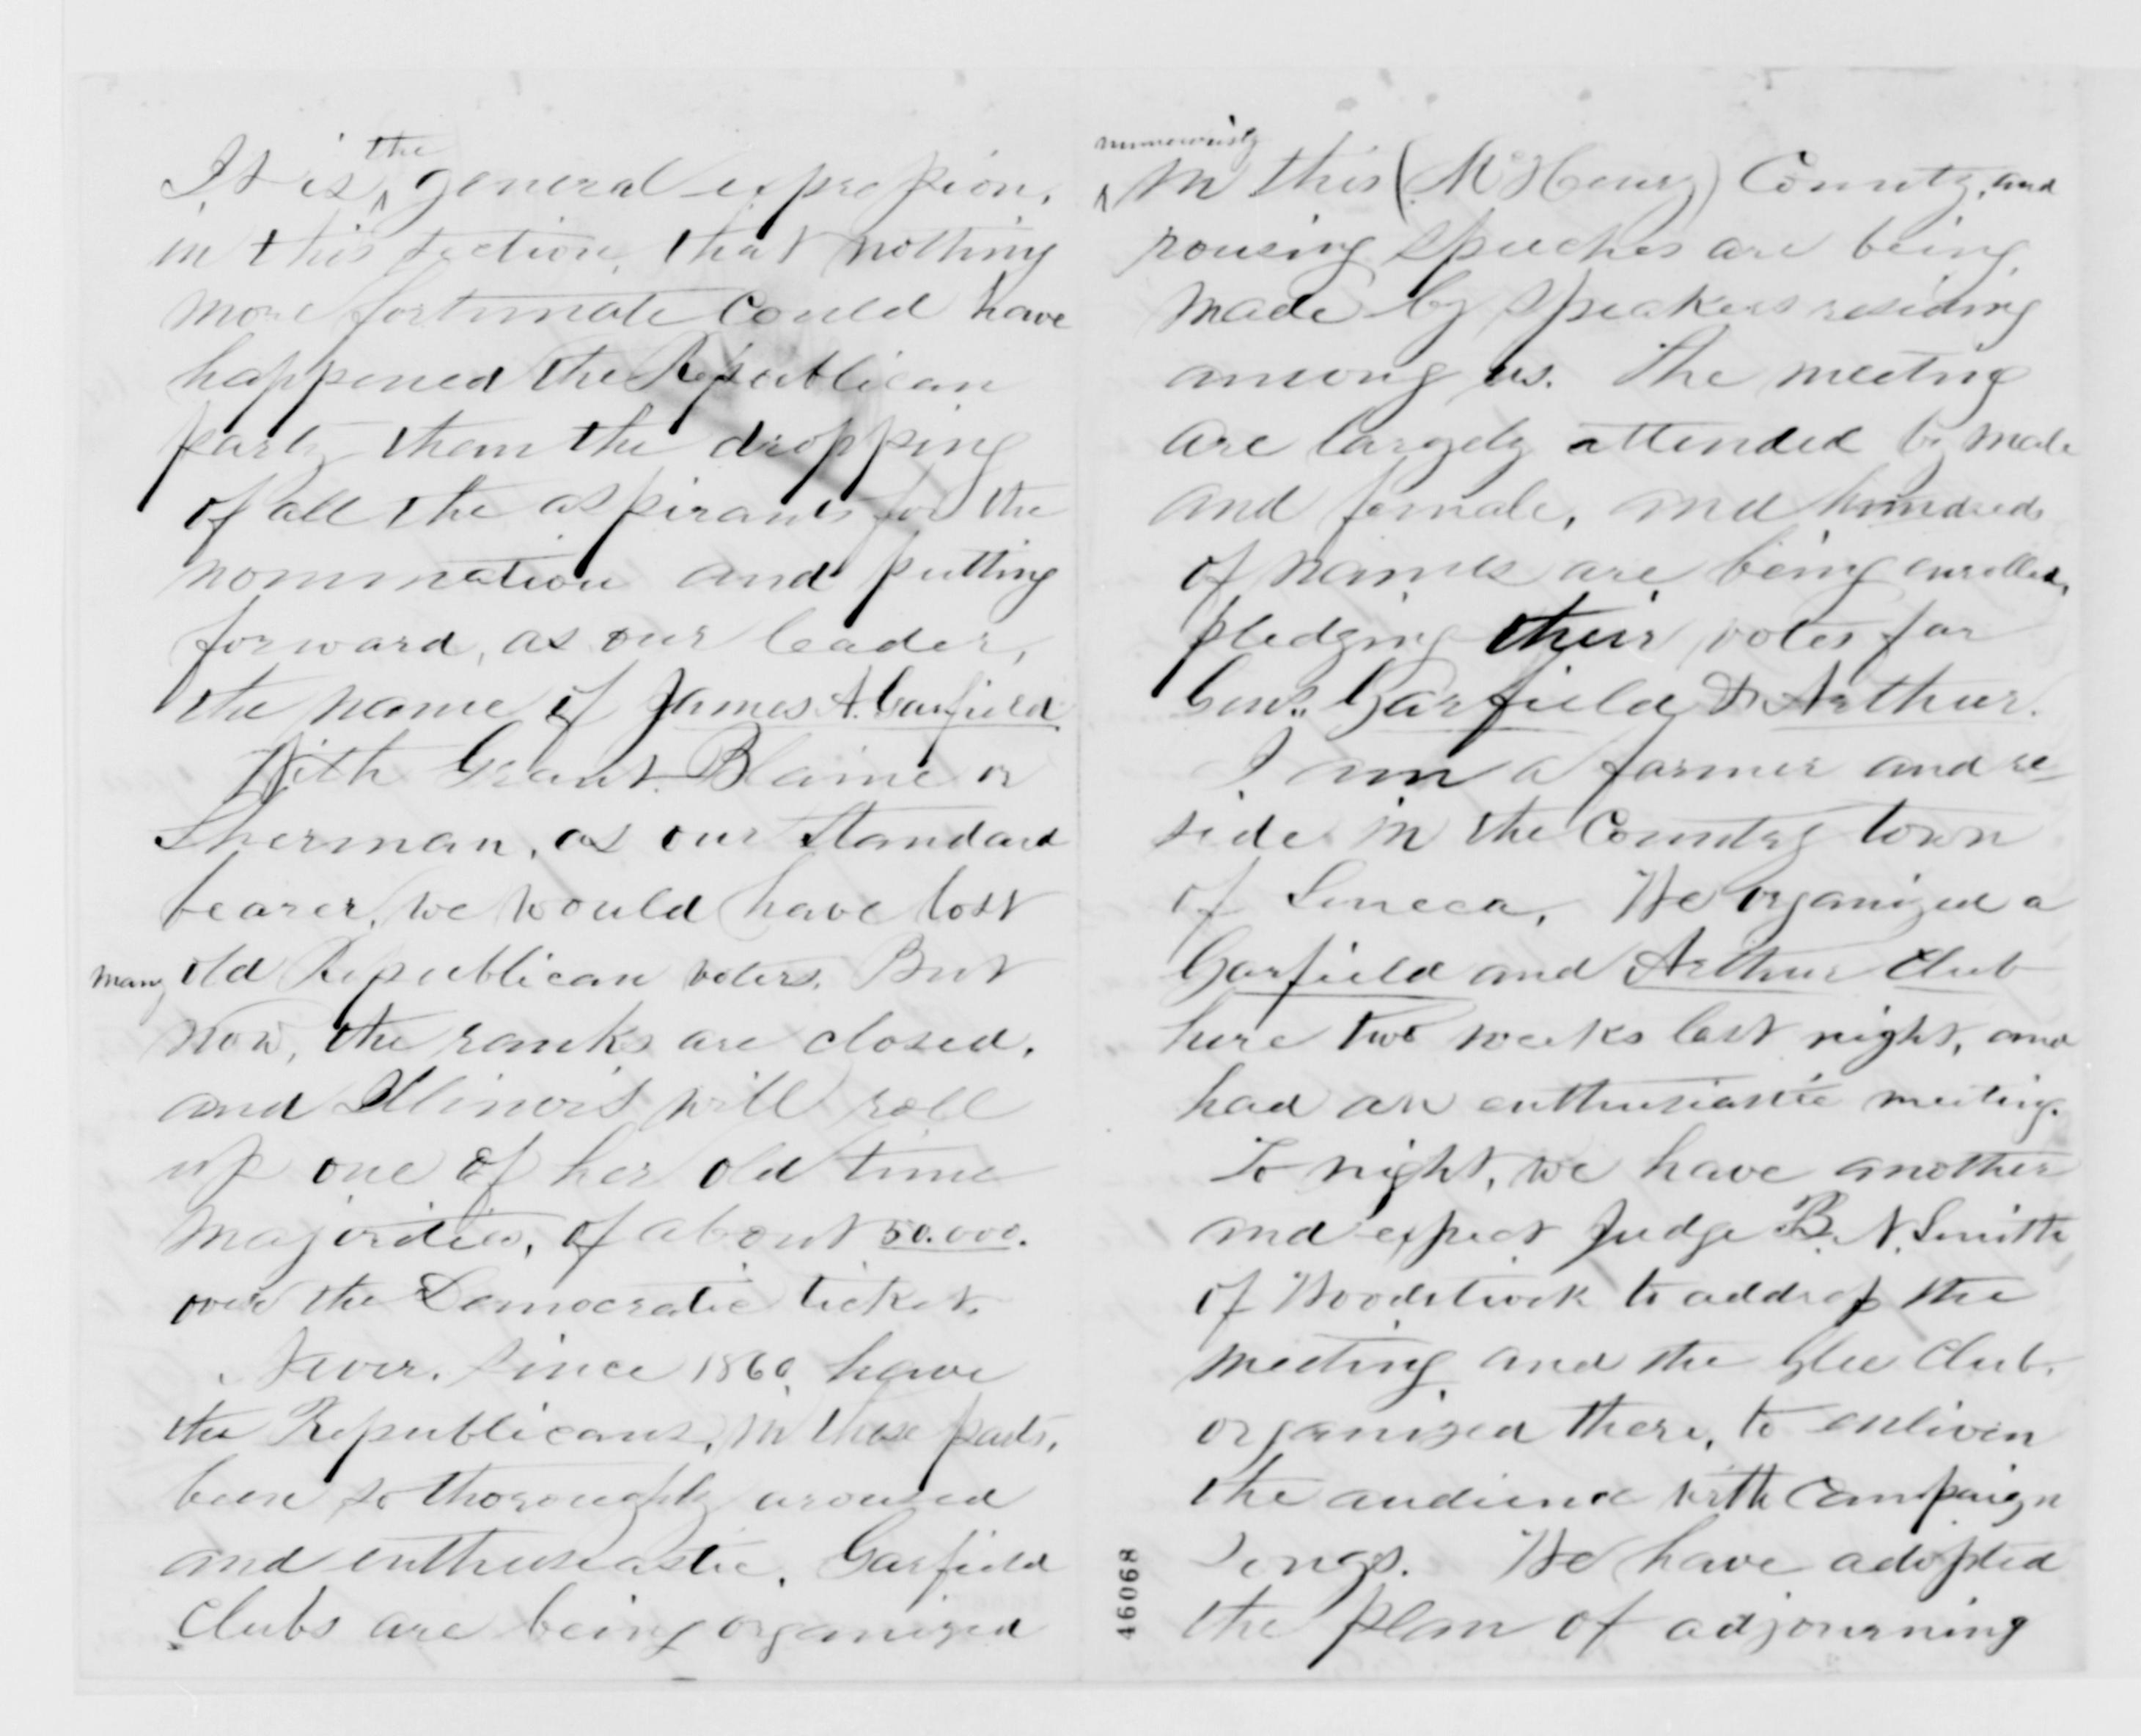 It is the general expression,
in this section, that nothing
more fortunate could have
happened the Republican
party than the dropping
of all the aspirants for the
nomination and putting
forward, as our leader,
the name of James A. Garfield
With Grant, Blaine or
Sherman, as our Standard
bearer, we would have lost
many old Republican voters. But
now, the ranks are closed,
and Illinois will roll
up one of her old time
majorities, of about 50.000.
over the Democratic ticket.
Never, since 1860, have
the Republicans, in these parts,
been so thoroughly aroused
and enthusiastic. Garfield
Clubs are being organized
numerously
in this (McHenry) County, and
rousing speeches are being
made by speakers residing
among us. The meeting
are largely attended by male
and female, and hundreds
of names are being enrolled,
pledging their votes for
Gens. Garfield & Arthur.
I am a farmer and re-
side in the Country town
of Seneca. We organized a
Garfield and Arthur Club
here two weeks last night, and
had an enthusiastic meeting.
To night, we have another
and expect Judge B. N. Smith
of Woodstock to address the
meeting and the Glee Club,
organized there, to enliven
the audience with Campaign
Songs. We have adopted
the plan of adjourning
46068